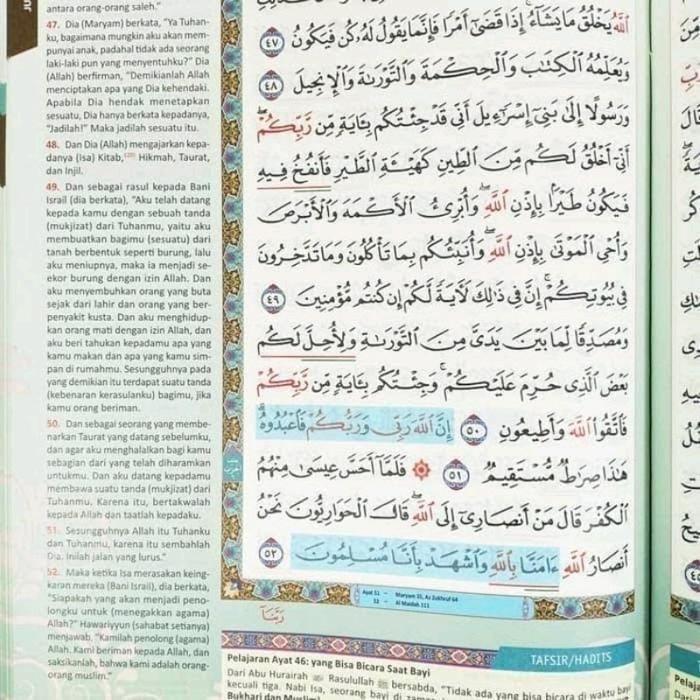 antara orang-orang saleh."
47. Dia (Maryam) berkata, "Ya Tuhan-
ku, bagaimana mungkin aku akan mem-
punyai anak, padahal tidak ada seorang
laki-laki pun yang menyentuhku?" Dia
(Allah) berfirman, "Demikianlah Allah
menciptakan apa yang Dia kehendaki.
Apabila Dia hendak menetapkan
sesuatu, Dia hanya berkata kepadanya,
"Jadilah!" Maka jadilah sesuatu itu.
48. Dan Dia (Allah) mengajarkan kepa-
danya (Isa) Kitab, Hikmah, Taurat,
dan Injil.
49. Dan sebagai rasul kepada Bani
Israil (dia berkata), "Aku telah datang
kepada kamu dengan sebuah tanda
(mukjizat) dari Tuhanmu, yaitu aku
membuatkan bagimu (sesuatu) dari
tanah berbentuk seperti burung, lalu
aku meniupnya, maka ia menjadi se-
ekor burung dengan izin Allah. Dan
aku menyembuhkan orang yang buta
sejak dari lahir dan orang yang ber-
penyakit kusta. Dan aku menghidup-
kan orang mati dengan izin Allah, dan
aku beri tahukan kepadamu apa yang
kamu makan dan apa yang kamu sim-
pan di rumahmu. Sesungguhnya pada
yang demikian itu terdapat suatu tanda
(kebenaran kerasulanku) bagimu, jika
kamu orang beriman.
50. Dan sebagai seorang yang membe-
narkan Taurat yang datang sebelumku,
dan agar aku menghalalkan bagi kamu
sebagian dari yang telah diharamkan
untukmu. Dan aku datang kepadamu
membawa suatu tanda (mukjizat) dari
Tuhanmu. Karena itu, bertakwalah
kepada Allah dan taatlah kepadaku.
51. Sesungguhnya Allah itu Tuhanku
dan Tuhanmu, karena itu sembahlah
Dia. Inilah jalan yang lurus."
52. Maka ketika Isa merasakan keing-
karan mereka (Bani Israil), dia berkata,
"Siapakah yang akan menjadi peno-
longku untuk (menegakkan agama)
Allah?" Hawariyyun (sahabat setianya)
menjawab, "Kamilah penolong (agama)
Allah. Kami beriman kepada Allah, dan
saksikanlah, bahwa kami adalah orang-
orang muslim."
اللَّهُ يَخْلُقُ مَا يَشَاءُ ۚ إِذَا قَضَىٰ أَمْرًا فَإِنَّمَا يَقُولُ لَهُ كُن فَيَكُونُ ٤٧
وَيُعَلِّمُهُ الْكِتَابَ وَالْحِكْمَةَ وَالتَّوْرَاةَ وَالْإِنجِيلَ ٤٨
وَرَسُولًا إِلَىٰ بَنِي إِسْرَائِيلَ أَنِّي قَدْ جِئْتُكُم بِآيَةٍ مِّن رَّبِّكُمْ ۖ
أَنِّي أَخْلُقُ لَكُم مِّنَ الطِّينِ كَهَيْئَةِ الطَّيْرِ فَأَنفُخُ فِيهِ
فَيَكُونُ طَيْرًا بِإِذْنِ اللَّهِ ۖ وَأُبْرِئُ الْأَكْمَهَ وَالْأَبْرَصَ
وَأُحْيِي الْمَوْتَىٰ بِإِذْنِ اللَّهِ ۖ وَأُنَبِّئُكُم بِمَا تَأْكُلُونَ وَمَا تَدَّخِرُونَ
فِي بُيُوتِكُمْ ۚ إِنَّ فِي ذَٰلِكَ لَآيَةً لَّكُمْ إِن كُنتُم مُّؤْمِنِينَ ٤٩
وَمُصَدِّقًا لِّمَا بَيْنَ يَدَيَّ مِنَ التَّوْرَاةِ وَلِأُحِلَّ لَكُم
بَعْضَ الَّذِي حُرِّمَ عَلَيْكُمْ ۚ وَجِئْتُكُم بِآيَةٍ مِّن رَّبِّكُمْ
فَاتَّقُوا اللَّهَ وَأَطِيعُونِ ٥٠ إِنَّ اللَّهَ رَبِّي وَرَبُّكُمْ فَاعْبُدُوهُ ۗ
هَٰذَا صِرَاطٌ مُّسْتَقِيمٌ ٥١ ۞ فَلَمَّا أَحَسَّ عِيسَىٰ مِنْهُمُ
الْكُفْرَ قَالَ مَنْ أَنصَارِي إِلَى اللَّهِ ۖ قَالَ الْحَوَارِيُّونَ نَحْنُ
أَنصَارُ اللَّهِ آمَنَّا بِاللَّهِ وَاشْهَدْ بِأَنَّا مُسْلِمُونَ ٥٢
Ayat 51 - Maryam 35, Az Zukhruf 64
52 - Al Maidah 111
رَبَّنَا
TAFSIR/HADITS
Pelajaran Ayat 46: yang Bisa Bicara Saat Bayi
Dari Abu Hurairah Rasulullah ﷺ bersabda, "Tidak ada yang bisa bicara di waktu
kecuali tiga. Nabi Isa, seorang bayi di
Bukhari dan